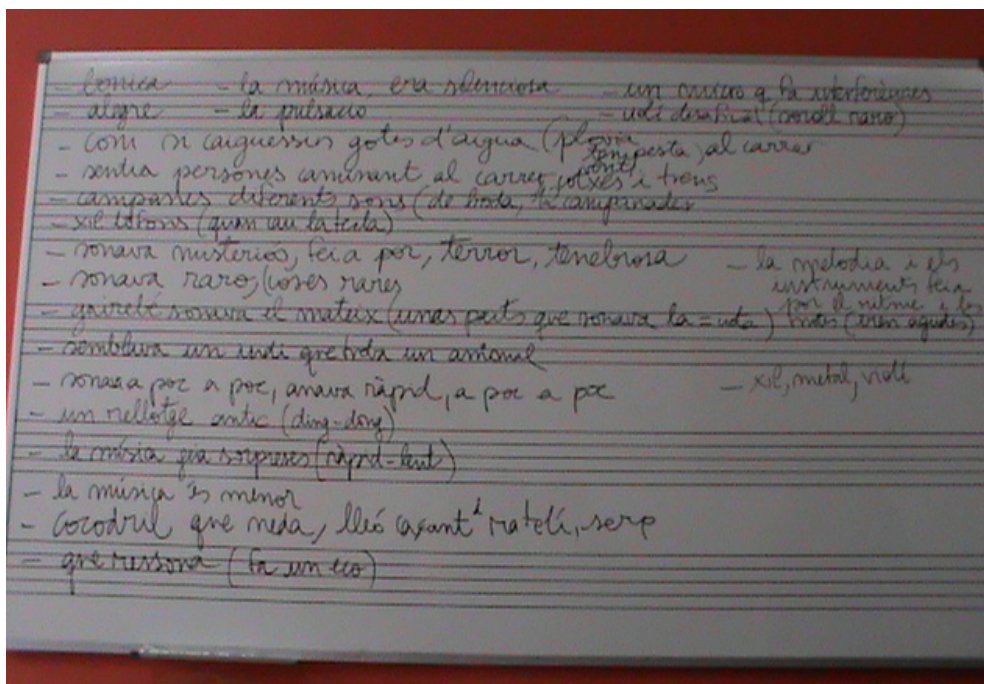 - bonica - la música, era silenciosa - un micro q fa interferències
- alegre - la pulsació - violí desafinat (soroll raro)
- com si caiguessin gotes d'aigua (plovia, tempesta) al carrer
- sentia persones caminant al carrer, cotxes i trens
- campanes diferents sons (de boda, campanades
- xilòfons (quan cau la tecla)
- sonava misteriós, feia por, terror, tenebrosa
- la melodia i els
instruments feia
por el ritme i les
notes (eren agudes)
- sonava raro, coses rares
- gairebé sonava el mateix (unas parts que sonava la = nota)
- semblava un indi que toca un animal
- sonava poc a poc, anava ràpid, a poc a poc - xil, metal, violí
- un rellotge antic (ding-dong)
- la música feia sorpreses (ràpid-lent)
- la música és menor
- cocodril que neda, lleó caçant 1 ratolí, serp
- que ressona (fa un eco)